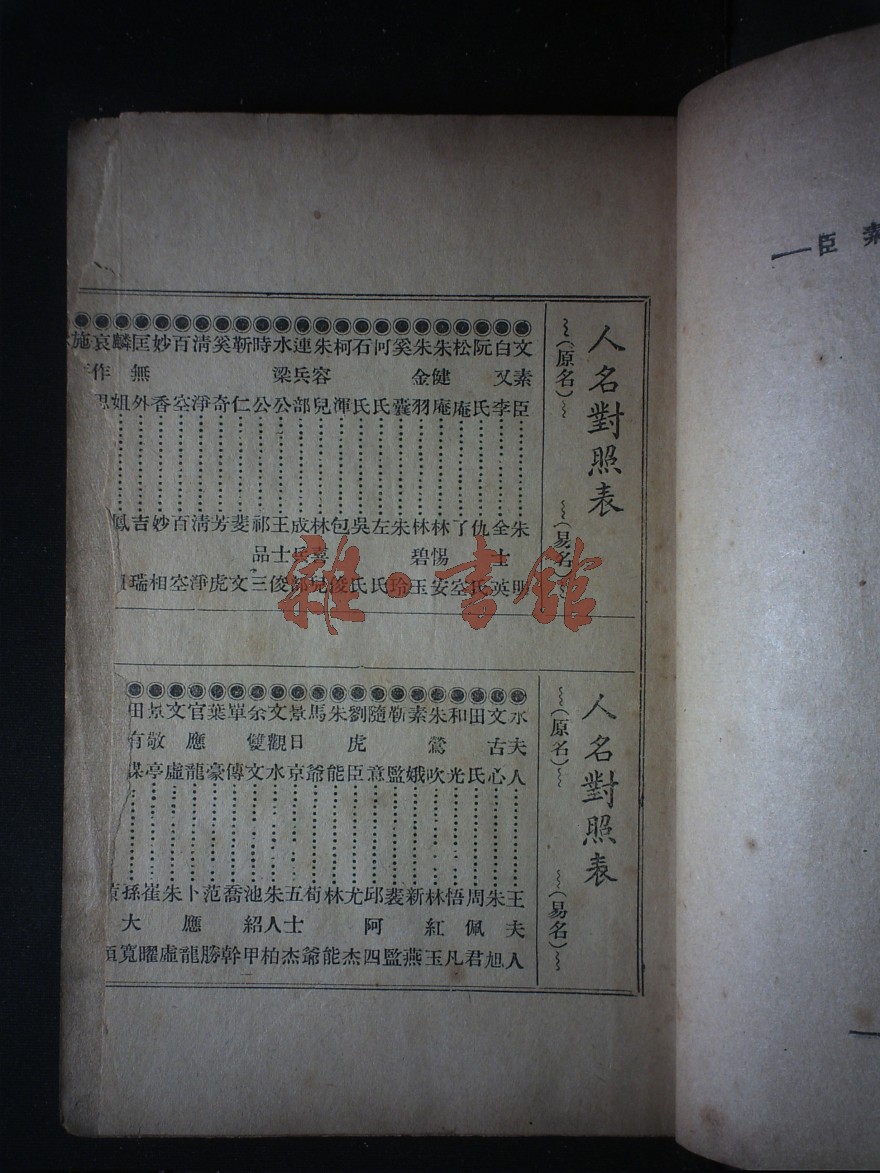 人名對照表
(原名) (易名)
文素臣……朱明
白又李……全士英
阮氏……仇氏
松庵……了空
朱健庵……林惕安
朱金羽……林碧玉
奚囊……朱玲
何氏……左氏
石氏……吳氏
柯渾……包俊
朱容兒……林嘉兒
連兵部……成兵部
水梁公……王士俊
時公……祁品三
靳仁……斐文
奚奇……芳虎
清淨……清淨
百空……百空
妙香……妙相
匡無外……吉瑞
麟姐……鳳
哀作
施
人名對照表
(原名) (易名)
水夫人……王夫人
文古心……朱旭
田氏……周佩君
和光……悟凡
朱鶯吹……林紅玉
素娥……新燕
靳監……裴監
隨意……邱阿四
劉虎臣……尤杰
朱能……林能
馬爺……荀爺
景日京……五士杰
文觀水……朱人柏
余雙文……池紹甲
單傳……喬幹
葉豪……范勝
官應龍……卜應龍
文虛……朱虛
景敬亭……崔曜
田有謀……孫大寬
雜·書館
臣